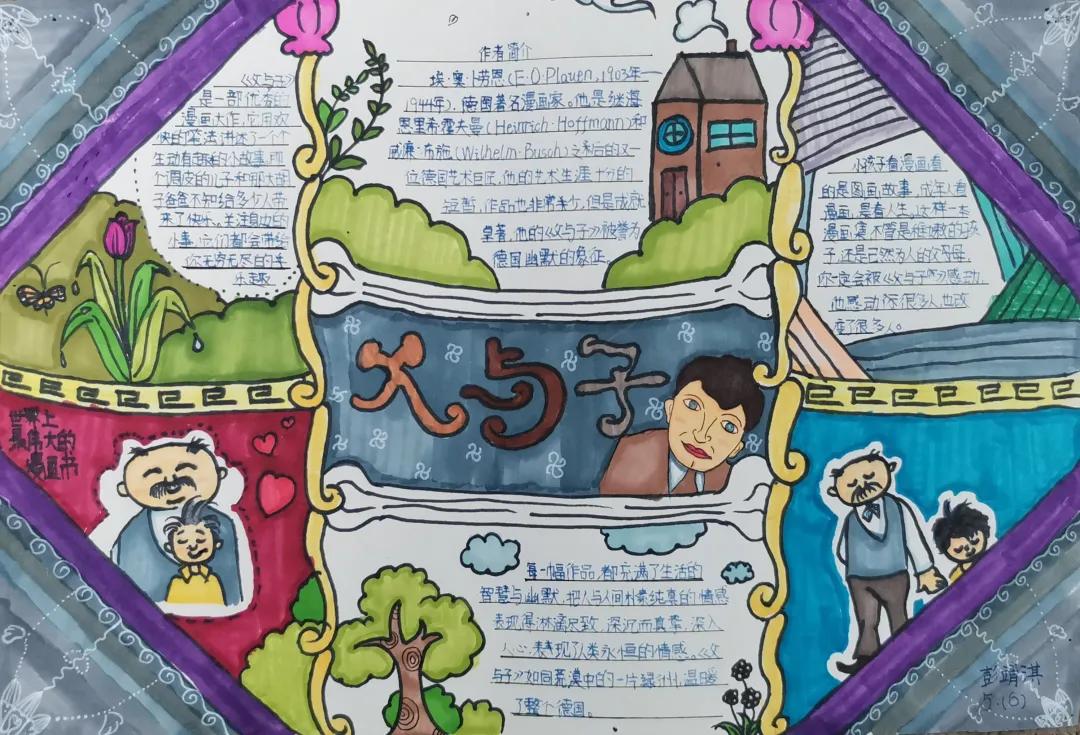 《父与子》
是一部优秀的
漫画大作,它用欢
快的笔法讲述了一个个
生动有趣的小故事,那
个调皮的儿子和那大胡
子爸爸不知给多少人带
来了快乐。关注身边的
小事,它们都会带给
你无穷无尽的乐趣
作者简介
埃·奥·卜劳恩(E·O·Plauen,1903年—
1944年),德国著名漫画家。他是继海
恩里希·霍夫曼(Heinrich·Hoffmann)和
威廉·布施(Wilhelm·Busch)之后的又一
位德国艺术巨匠,他的艺术生涯十分的
短暂,作品也非常少,但是成就
卓著,他的《父与子》被誉为
德国幽默的象征。
小孩子看漫画看
的是图画故事,成年人看
漫画,是看人生。这样一本
漫画集不管是
子,还是已然为人的父母,
你一定会被《父与子》所感动,
也感动了很多人,也改
变了很多人。
父与子
世界上
最伟大的
漫画书
每一幅作品,都充满了生活的
智慧与幽默,把人与人间朴素纯真的情感
表现得淋漓尽致,深沉而真挚,深入
人心,表现了人类永恒的情感。《父
与子》如同荒漠中的一片绿洲,温暖
了整个德国。
彭靖淇
5.(6)